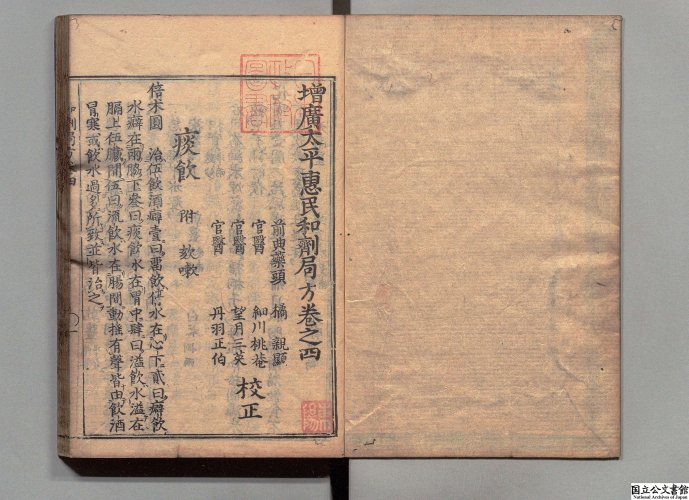 增廣太平惠民和劑局方卷之四
前典藥頭 橘 親顯
官醫 細川桃菴
官醫 望月三英 校正
官醫 丹羽正伯
痰飲 附 欬嗽
倍术圓 治伍飲酒癖壹曰畱飲停水在心下貳曰癖飲
水癖在兩脇下叁曰痰飲水在胃中肆曰溢飲水溢在
膈上伍臟間伍曰流飲水在腸間動搖有聲皆由飲酒
冒寒或飲水過多所致並皆治之
国立公文書館
National Archives of Japan